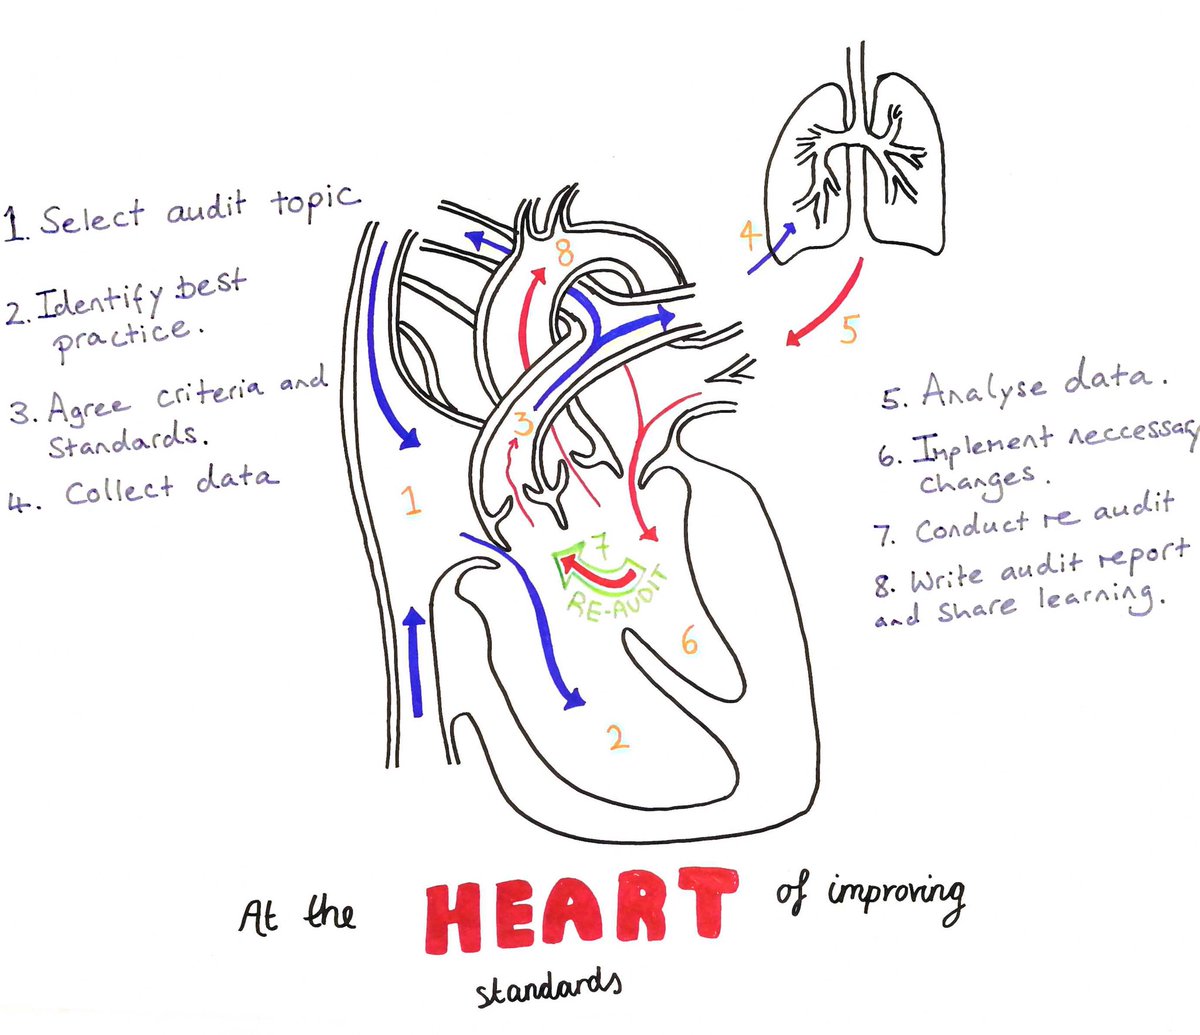 1. Select audit topic
2. Identify best
practice.
3. Agree criteria and
standards.
4. Collect data
8
4
5
3
1
7
RE-AUDIT
6
2
5. Analyse data.
6. Implement neccessary
changes.
7. Conduct re audit
8. Write audit report
and share learning.
At the HEART of improving
standards